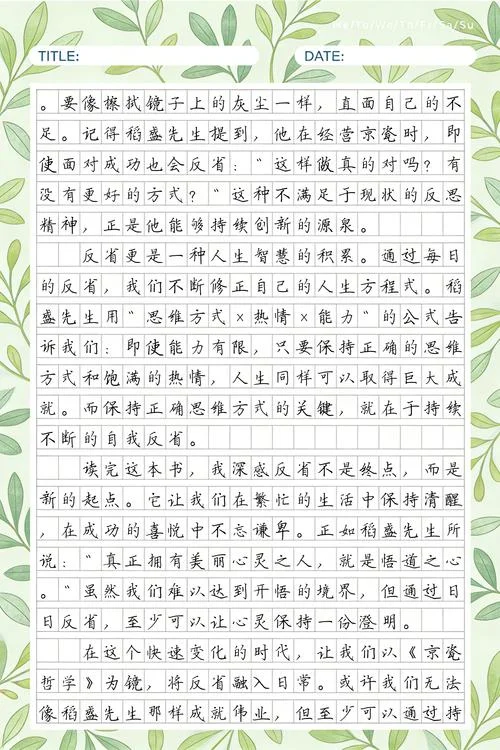 Me/Tu/We/Th/Fr/Sa/Su
TITLE:
DATE:
。要像擦拭镜子上的灰尘一样，直面自己的不
足。记得稻盛先生提到，他在经营京瓷时，即
使面对成功也会反省："这样做真的对吗？有
没有更好的方式？"这种不满足于现状的反思
精神，正是他能够持续创新的源泉。
反省更是一种人生智慧的积累。通过每日
的反省，我们不断修正自己的人生方程式。稻
盛先生用"思维方式×热情×能力"的公式告
诉我们：即使能力有限，只要保持正确的思维
方式和饱满的热情，人生同样可以取得巨大成
就。而保持正确思维方式的关键，就在于持续
不断的自我反省。
读完这本书，我深感反省不是终点，而是
新的起点。它让我们在繁忙的生活中保持清醒
，在成功的喜悦中不忘谦卑。正如稻盛先生所
说："真正拥有美丽心灵之人，就是悟道之心
。"虽然我们难以达到开悟的境界，但通过日
日反省，至少可以让心灵保持一份澄明。
在这个快速变化的时代，让我们以《京瓷
哲学》为镜，将反省融入日常。或许我们无法
像稻盛先生那样成就伟业，但至少可以通过持